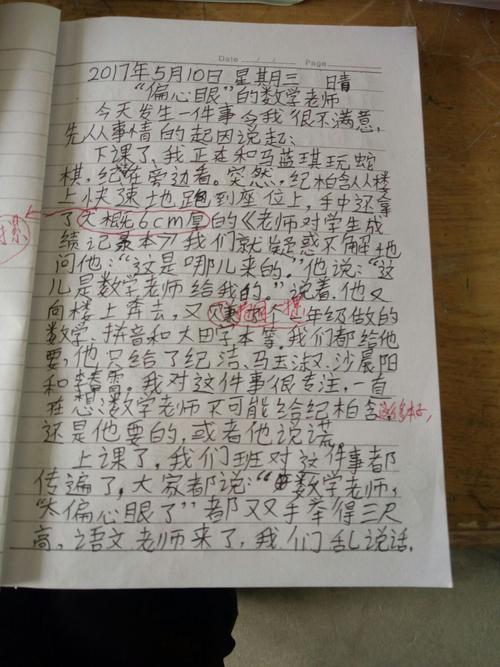 Date / / Page
2017年5月10日 星期三 晴
“偏心眼”的数学老师
今天发生一件事令我很不满意,
先从事情的起因说起:
下课了、我正在和马蓝琪玩蛇
棋,纪在旁边者。突然,纪柏含从楼
上快速地跑到座位上,手中还拿
了大概6cm厚的《老师对学生成
绩记录本》我们就疑惑不解地
问他:“这是哪儿来的。”他说:“这
儿是数学老师给我的。”说着,他又
向楼上奔去,又 个三年级做的
数学、拼音和大田字本等,我们都给他
要,他只给了纪洁、马玉淑、沙晨阳
和 雪。我对这件事很专注,一直
在想:数学老师不可能给纪柏含这么多本子,
还是他要的,或者他说谎。
上课了,我们班对这件事都
传遍了,大家都说:“数学老师,
太偏心眼了”都双双手举得三尺
高,语文老师来了,我们乱说话.